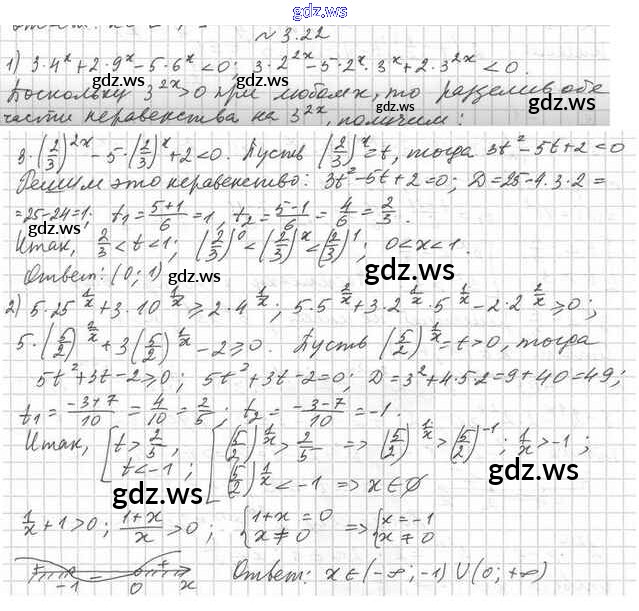 gdz.ws
N 3.22
1) 3·4^x + 2·9^x − 5·6^x < 0; 3·2^{2x} − 5·2^x·3^x + 2·3^{2x} < 0.
gdz.ws gdz.ws
Поскольку 3^{2x} > 0 при любом x, то разделив обе
части неравенства на 3^{2x}, получим:
3·(2/3)^{2x} − 5·(2/3)^x + 2 < 0. Пусть (2/3)^x = t, тогда 3t² − 5t + 2 < 0
Решим это неравенство: 3t² − 5t + 2 = 0; D = 25 − 4·3·2 =
= 25 − 24 = 1; t₁ = (5+1)/6 = 1, t₂ = (5−1)/6 = 4/6 = 2/3.
gdz.ws gdz.ws
Итак, 2/3 < t < 1; (2/3)^0 < (2/3)^x < (2/3)^1; 0 < x < 1.
Ответ: (0; 1) gdz.ws gdz.ws
2) 5·25^{1/x} + 3·10^{1/x} ⩾ 2·4^{1/x}; 5·5^{2/x} + 3·2^{1/x}·5^{1/x} − 2·2^{2/x} ⩾ 0;
5·(5/2)^{2/x} + 3(5/2)^{1/x} − 2 ⩾ 0. Пусть (5/2)^{1/x} = t > 0, тогда
5t² + 3t − 2 ⩾ 0; 5t² + 3t − 2 = 0; D = 3² + 4·5·2 = 9 + 40 = 49;
t₁ = (−3+7)/10 = 4/10 = 2/5; t₂ = (−3−7)/10 = −1.
gdz.ws gdz.ws
Итак, [t > 2/5, t < −1; [(5/2)^{1/x} > 2/5 => (5/2)^{1/x} > (5/2)^{−1}; 1/x > −1;
(5/2)^{1/x} < −1 => x ∈ ∅
gdz.ws gdz.ws
1/x + 1 > 0; (1+x)/x > 0; {1+x = 0 x ≠ 0 => {x = −1 x ≠ 0
+ −1 − 0 + x Ответ: x ∈ (−∞; −1) ∪ (0; +∞)
gdz.ws gdz.ws